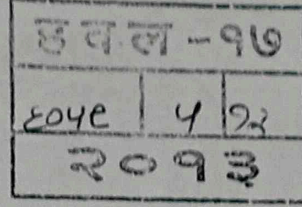 हवल-१७
६०५९ ५ १२
२०१३